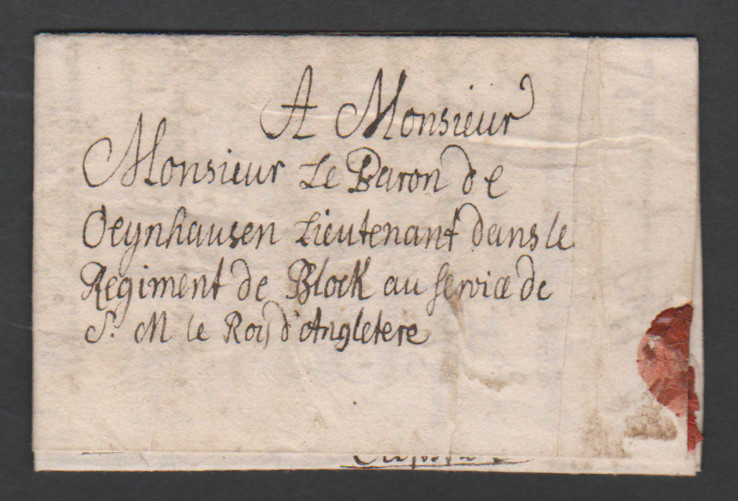 A Monsieur
Monsieur Le Baron de
Oeynhausen Lieutenant dans le
Regiment de Block au service de
S. M le Roy d'Angletere